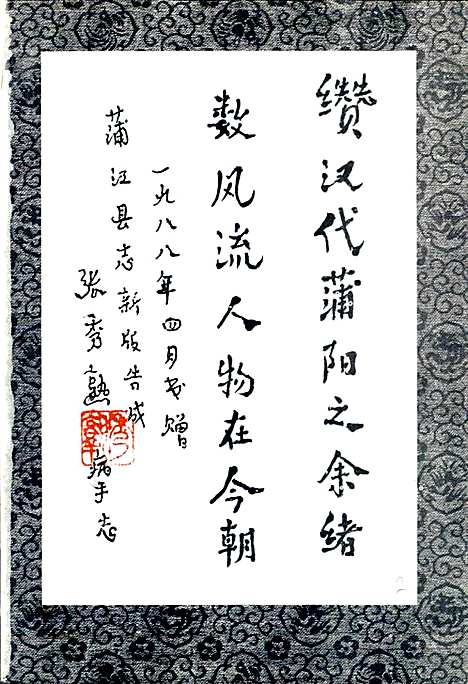 缵汉代蒲阳之余绪
数风流人物在今朝
一九八八年四月敬赠
蒲江县志新版告成
张秀熟
病手志